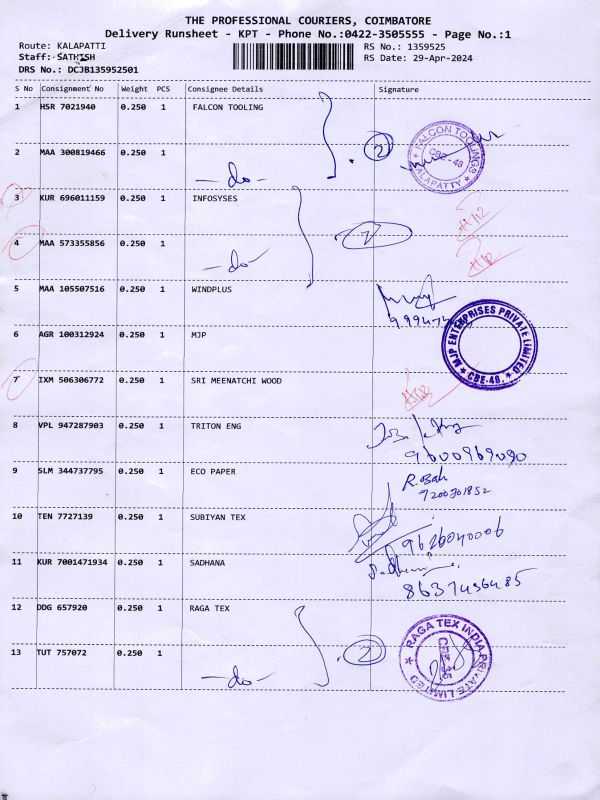 THE PROFESSIONAL COURIERS, COIMBATORE
Delivery Runsheet - KPT - Phone No.:0422-3505555 - Page No.:1
Route: KALAPATTI
RS No.: 1359525
Staff: SATHISH
RS Date: 29-Apr-2024
DRS No.: DCJB135952501
S No Consignment No Weight PCS Consignee Details Signature
1 HSR 7021940 0.250 1 FALCON TOOLING
2 MAA 300819466 0.250 1 —do—
2
FALCON TOOLINGS
CBE - 48
KALAPATTY
3 KUR 696011159 0.250 1 INFOSYSES
4 MAA 573355856 0.250 1 —do—
2
5 MAA 105507516 0.250 1 WINDPLUS
6 AGR 100312924 0.250 1 MJP
MJP ENTERPRISES PRIVATE LIMITED
CBE-48.
7 IXM 506306772 0.250 1 SRI MEENATCHI WOOD
8 VPL 947287903 0.250 1 TRITON ENG
9600969090
9 SLM 344737795 0.250 1 ECO PAPER
R. Bah
7200301852
10 TEN 7727139 0.250 1 SUBIYAN TEX
9626040006
11 KUR 7001471934 0.250 1 SADHANA
8637436485
12 DDG 657920 0.250 1 RAGA TEX
13 TUT 757072 0.250 1 —do—
2
RAGA TEX INDIA PRIVATE LIMITED